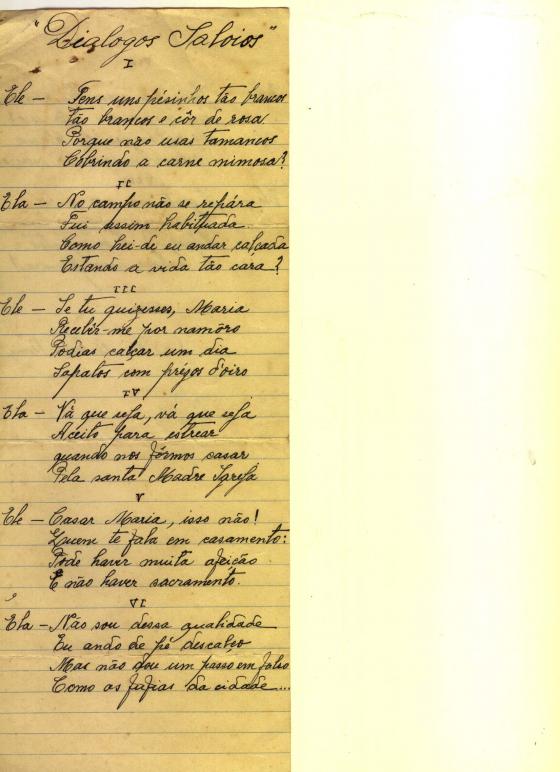 "Dialogos Saloios"
I
Ele - Tens uns pésinhos tão brancos
tão brancos e côr de rosa
Porque não usas tamancos
Cobrindo a carne mimosa?
II
Ela - No campo não se repára
Fui assim habituada.
Como hei-de eu andar calçada
Estando a vida tão cara?
III
Ele - Se tu quizesses, Maria
Receber-me por namôro
Podias calçar um dia
Sapatos com prégos d'oiro
IV
Ela - Vá que seja, vá que seja
Aceito para estrear
quando nos fôrmos casar
Pela santa Madre Igreja
V
Ele - Casar Maria, isso não!
Quem te fala em casamento:
Pode haver muita afeição
E não haver sacramento.
VI
Ela - Não sou dessa qualidade
Eu ando de pé descalço
Mas não dou um passo em falso
Como as fufias da cidade...